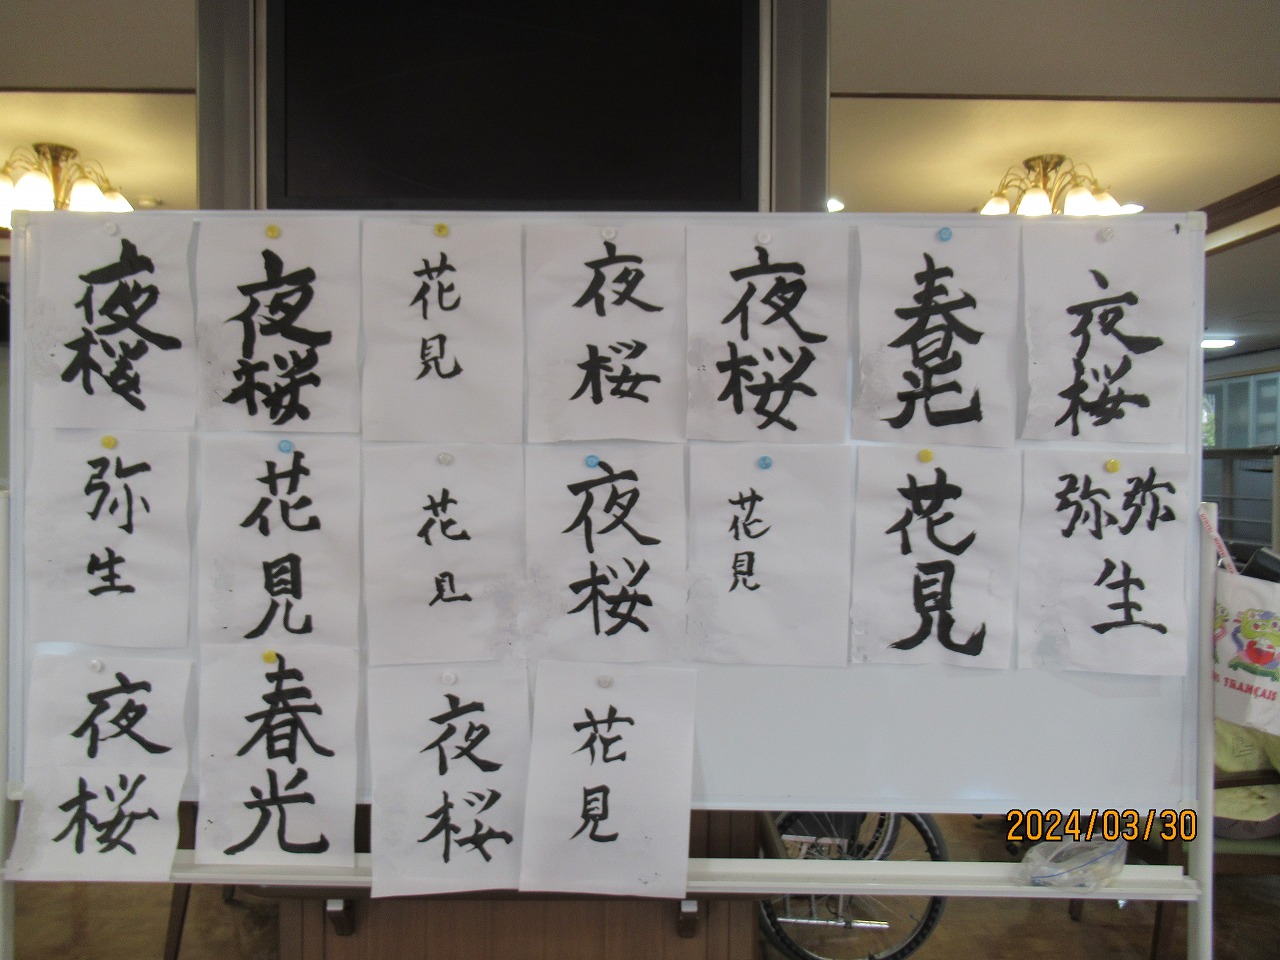 夜桜
夜桜
花見
夜桜
夜桜
春光
夜桜
弥生
花見
花見
夜桜
花見
花見
弥弥生
夜桜
春光
夜桜
花見
FRANÇAIS
2024/03/30